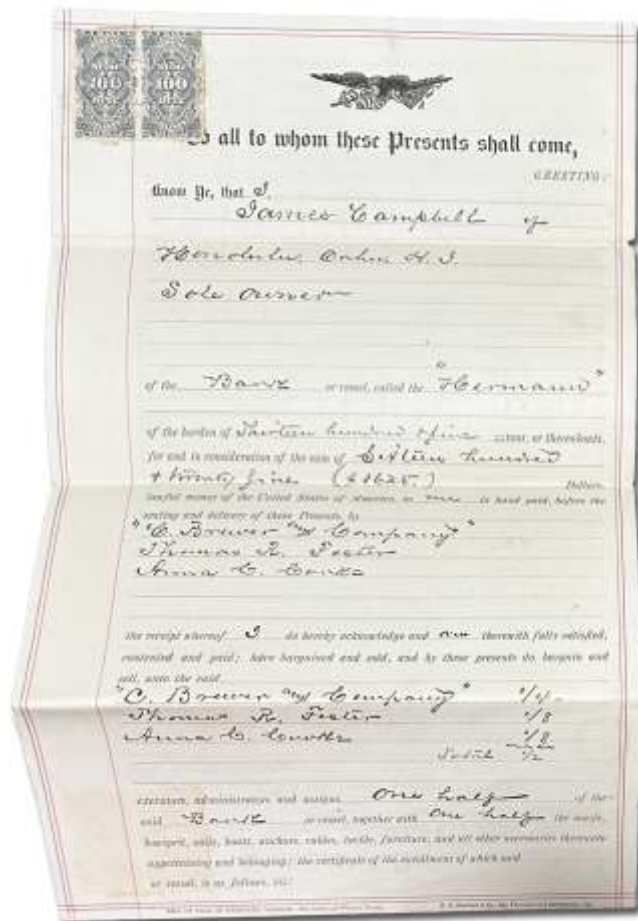 100
To all to whom these Presents shall come,
GREETING:
Know Ye, that I,
James Campbell of
Honolulu, Oahu H. I.
Sole owner
of the Bark or vessel, called the "Hermann"
of the burden of Thirteen hundred & five or thereabouts,
for and in consideration of the sum of Sixteen hundred
& twenty five ($1625.) Dollars,
lawful money of the United States of America, to me in hand paid, before the
sealing and delivery of these Presents, by
"C. Brewer and Company"
Thomas R. Foster
Anna C.
the receipt whereof I do hereby acknowledge and am therewith fully satisfied,
contented and paid; have bargained and sold, and by these presents do bargain and
sell, unto the said
"C. Brewer and Company" 1/4
Thomas R. Foster 1/8
Anna C. 1/8
1/2
executors, administrators and assigns One half of the
said Bark or vessel, together with One half the masts,
bowsprit, sails, boats, anchors, cables, tackle, furniture, and all other necessaries thereunto
appertaining and belonging; the certificate of the enrollment of which said
or vessel, is as follows, viz: